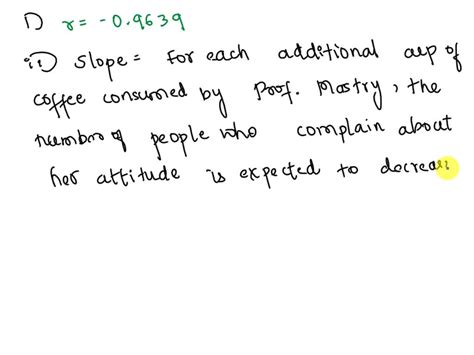 1) r = -0.9639
ii) Slope = For each additional cup of
coffee consumed by Prof. Mastry, the
number of people who complain about
her attitude is expected to decreas